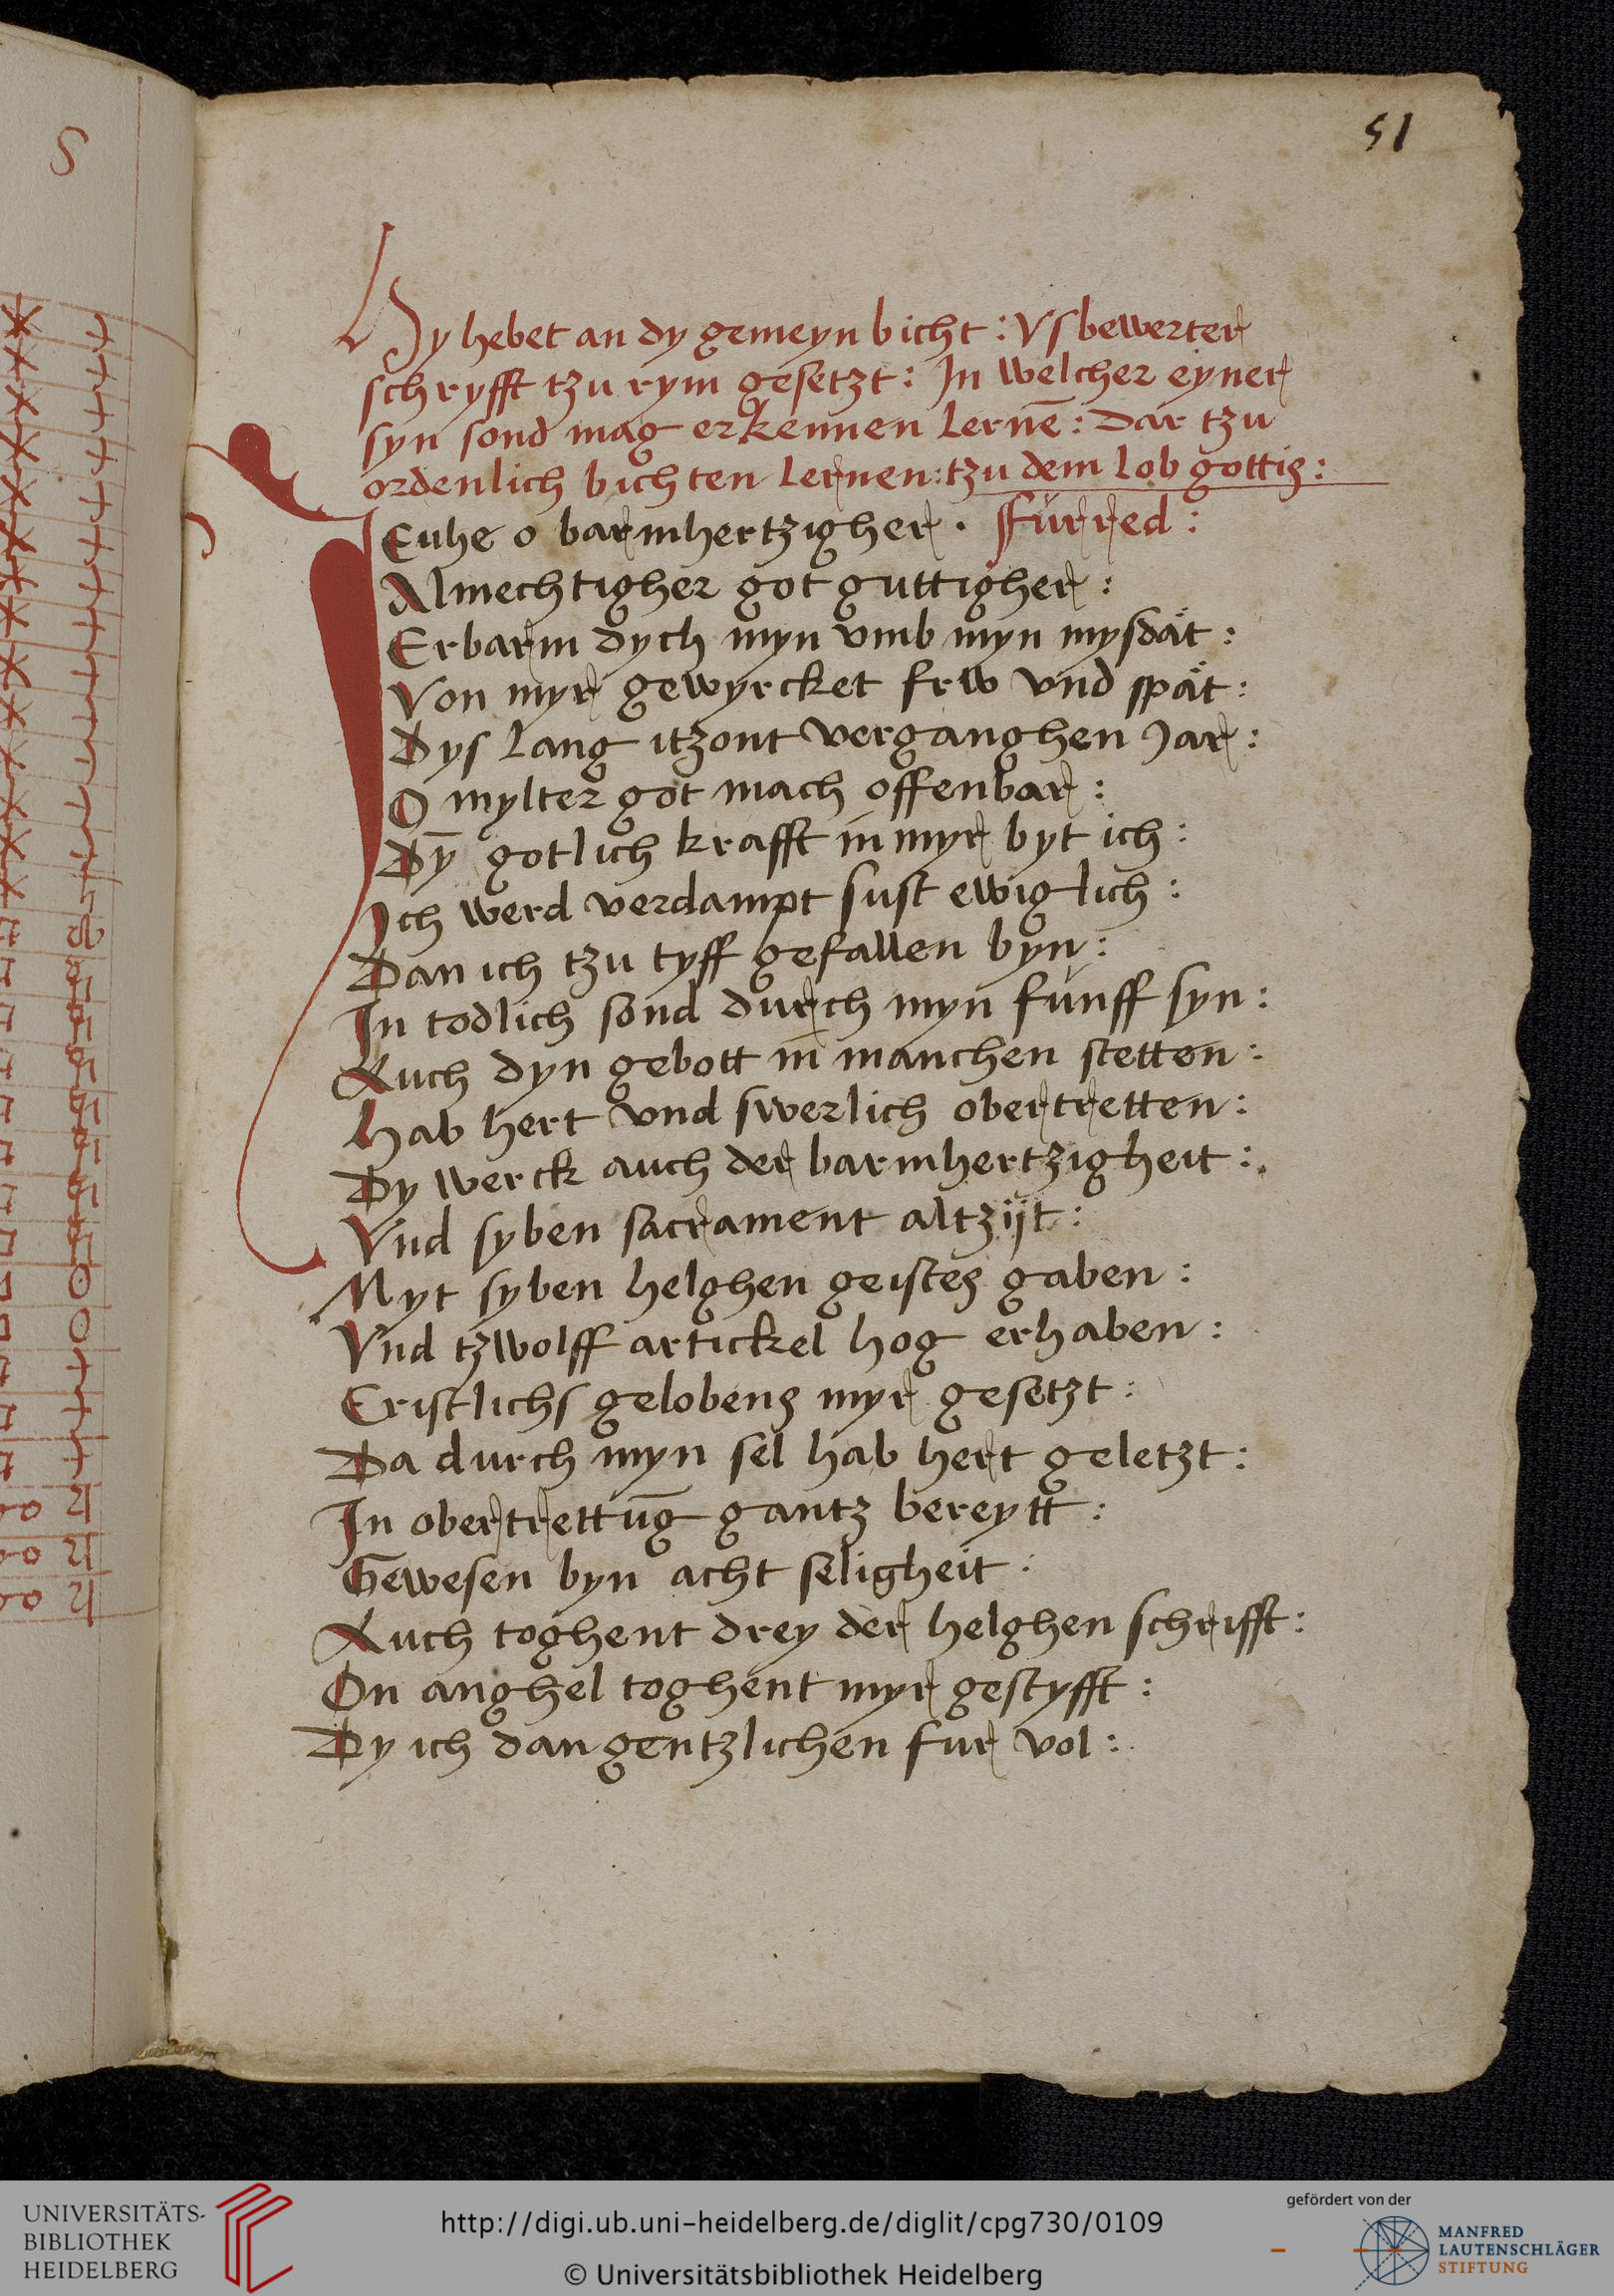 51
Hy hebet an dy gemeyn bicht : Vs bewerter
schryfft tzu rym gesetzt : In welcher eyner
syn sond mag erkennen lernē : Dar tzu
ordenlich bichten lernen : tzu dem lob gottis :
IEuhe o barmhertzigher . ffürred :
Almechtigher got guttigher :
Erbarm dych myn vmb myn mysdät :
Von myr gewyrcket frw vnd spät :
Dys lang itzont verganghen Jar :
O mylter got mach offenbar :
Dȳ gotlich krafft in myr byt ich :
Ich werd verdampt sust ewiglich :
Dan ich tzu tyff gefallen byn :
In todlich sond durch myn fünff syn :
Auch dyn gebott in manchen stetten :
Hab hert vnd swerlich obertretten :
Dy werck auch der barmhertzigheit :
Vnd syben sacrament altzijt :
Myt syben helghen geistes gaben :
Vnd tzwolff artickel hog erhaben :
Cristlichs gelobens myr gesetzt :
Da durch myn sel hab hert geletzt :
In obertrettūg gantz bereytt :
Gewesen byn acht seligheit :
Auch toghent drey der helghen schrifft :
On anghel toghent myr gestyfft :
Dy ich dan gentzlichen fur vol :
UNIVERSITÄTS-
BIBLIOTHEK
HEIDELBERG
http://digi.ub.uni-heidelberg.de/diglit/cpg730/0109
© Universitätsbibliothek Heidelberg
gefördert von der
MANFRED
LAUTENSCHLÄGER
STIFTUNG